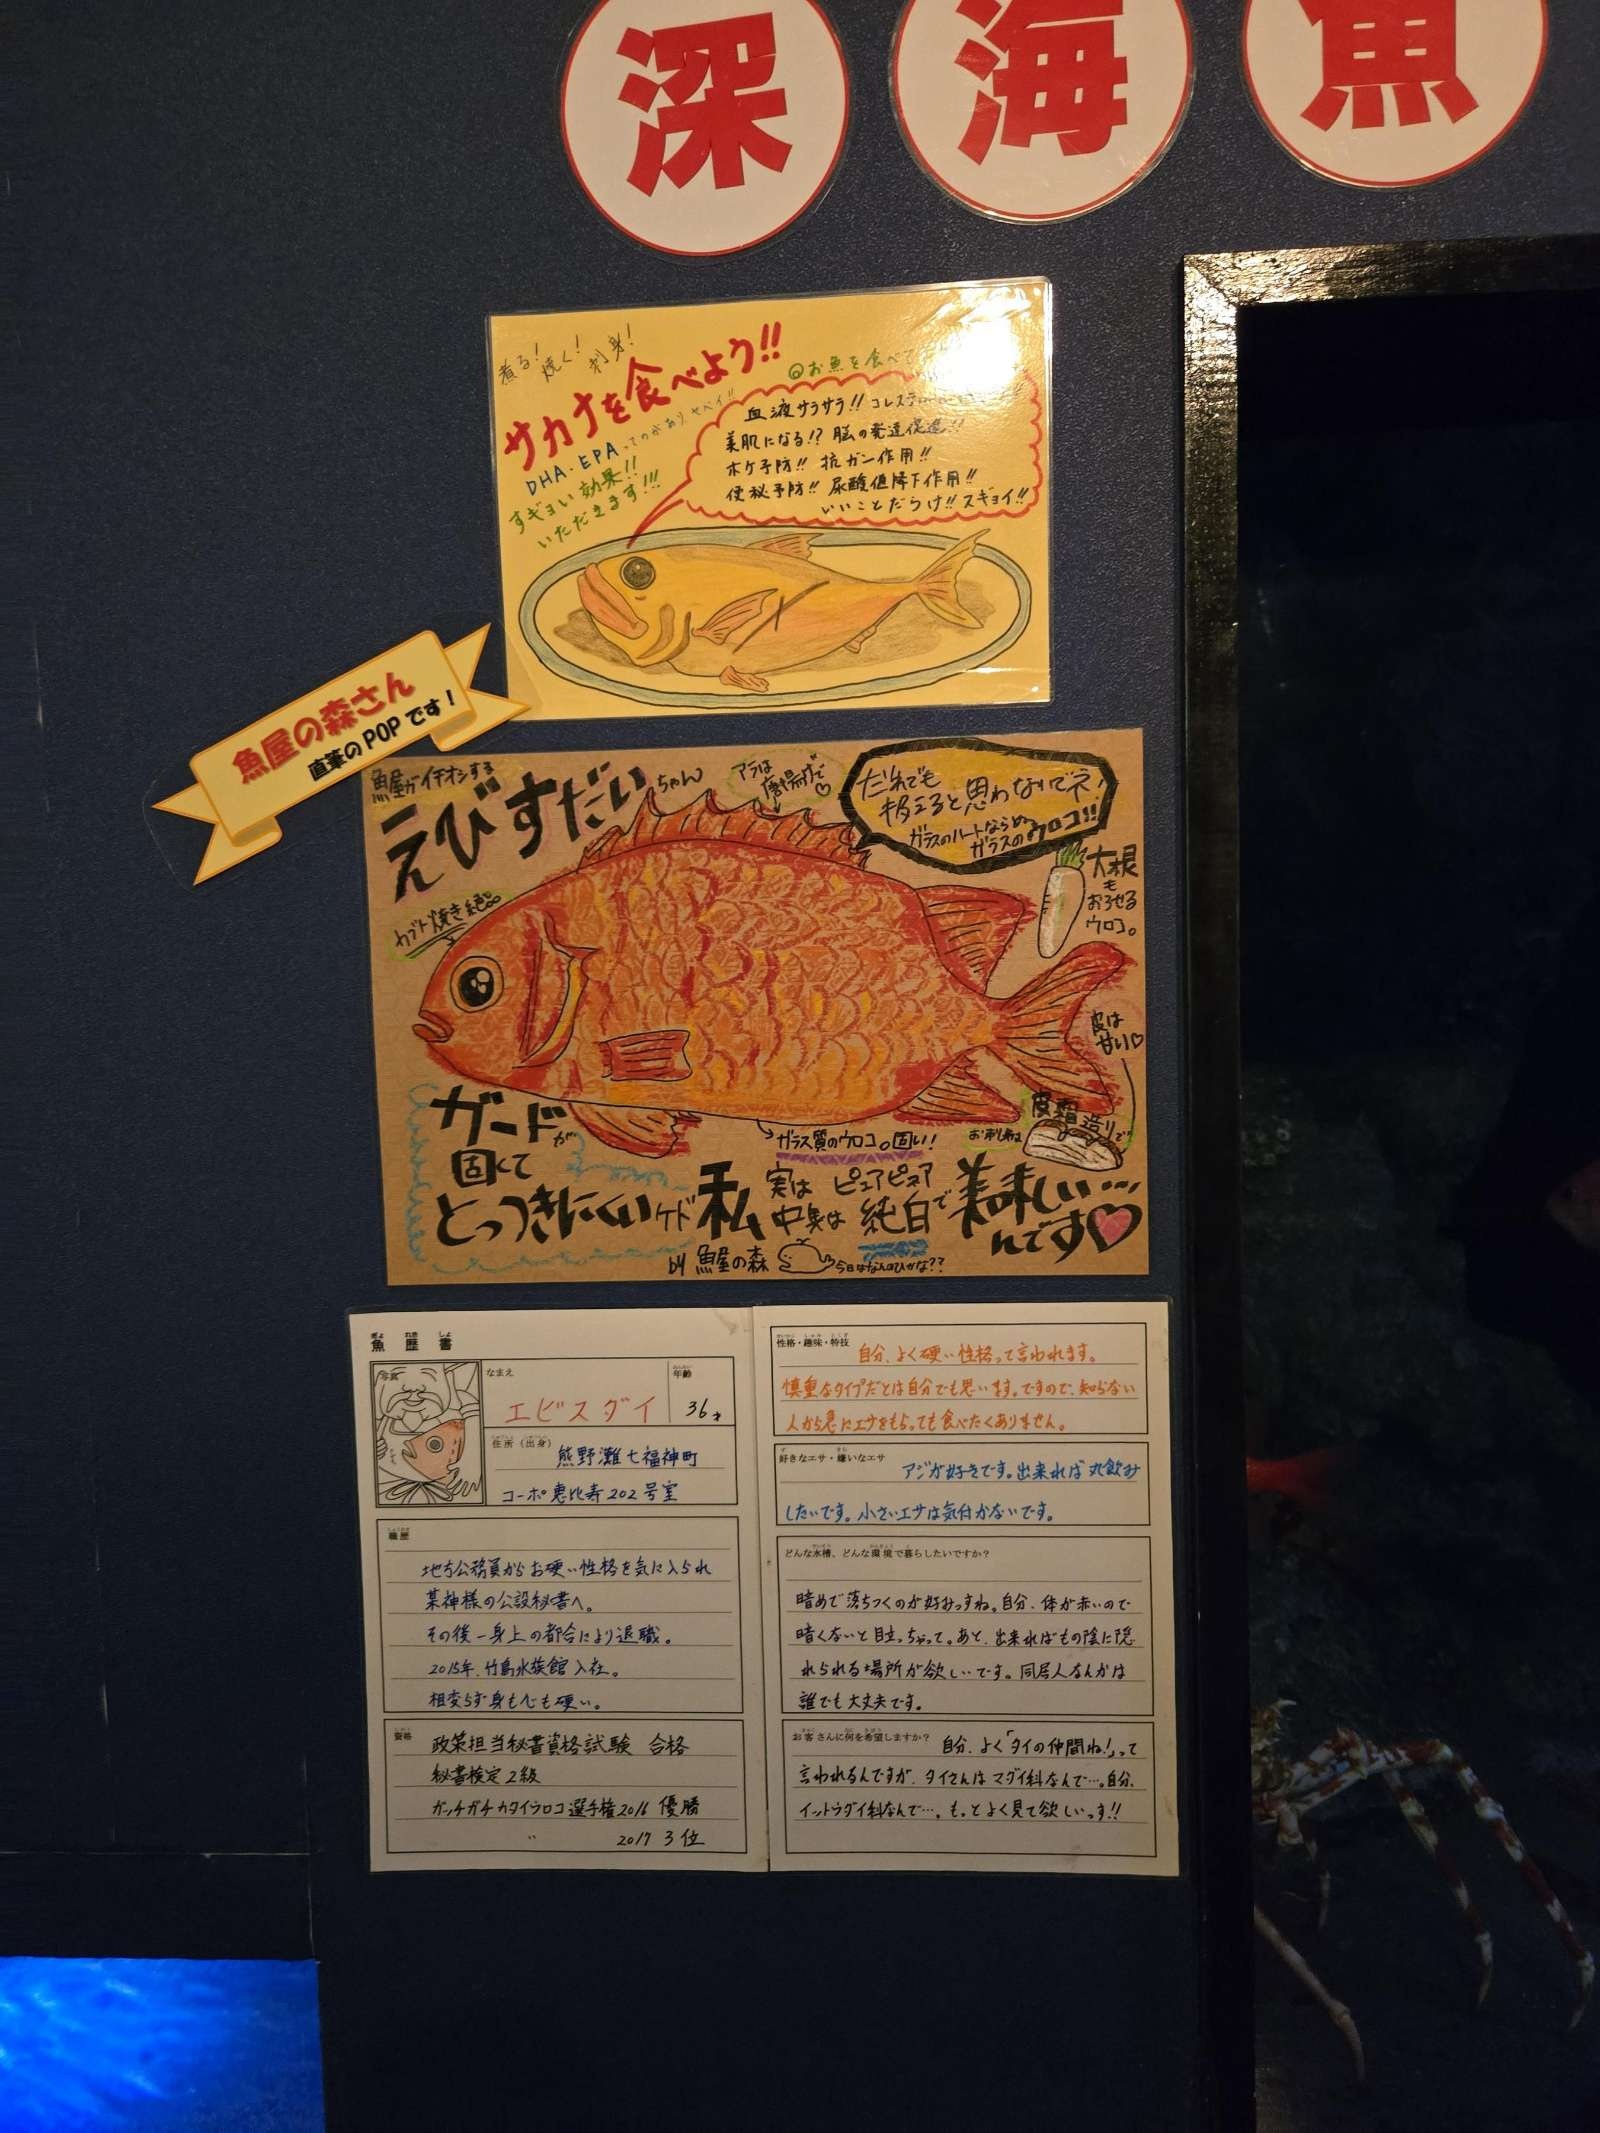 深海魚
煮る! 焼く! 刺身!
サカナを食べよう!!
DHA・EPAってのがありヤベイ!!
すギョい効果!!
いただきます!!!
◎お魚を食べて
血液サラサラ!! コレステ
美肌になる!? 脳の発達促進!!
ボケ予防!! 抗ガン作用!!
便秘予防!! 尿酸値降下作用!!
いいことだらけ!! スギョイ!!
魚屋の森さん
直筆のPOPです!
魚屋がイチオシする
えびすだいちゃん
アラは
唐揚げで♡
だれでも
扱えると思わないでネ!
ガラスのハートならぬ
ガラスのウロコ!!
大根
も
おろせる
ウロコ。
カブト焼き絶品
皮は
甘い♡
ガラス質のウロコ。固い!
お刺身は
皮霜造りで
ガードが
固くて
とっつきにくいケド私実は中身はピュアピュア純白で美味しい…
んです♡
by 魚屋の森 今日はなんのひかな??
魚歴書
ぎょ れき しょ
写真
なまえ
エビスダイ
年齢
36才
住所(出身)
熊野灘七福神町
コーポ恵比寿202号室
職歴
地方公務員からお硬い性格を気に入られ
某神様の公設秘書へ。
その後一身上の都合により退職。
2015年、竹島水族館入社。
相変らず身も心も硬い。
資格
政策担当秘書資格試験 合格
秘書検定2級
ガッチガチカタイウロコ選手権2016 優勝
〃 2017 3位
性格・趣味・特技
自分、よく硬い性格って言われます。
慎重なタイプだとは自分でも思います。ですので、知らない
人から急にエサをもらっても食べたくありません。
好きなエサ・嫌いなエサ
アジが好きです。出来れば丸飲み
したいです。小さいエサは気付かないです。
どんな水槽、どんな環境で暮らしたいですか?
暗めで落ちつくのが好みっすね。自分、体が赤いので
暗くないと目立っちゃって。あと、出来ればもの陰に隠
れられる場所が欲しいです。同居人なんかは
誰でも大丈夫です。
お客さんに何を希望しますか?
自分、よく「タイの仲間ね!」って
言われるんですが、タイさんはマダイ科なんで…。自分、
イットウダイ科なんで…。もっとよく見て欲しいっす!!